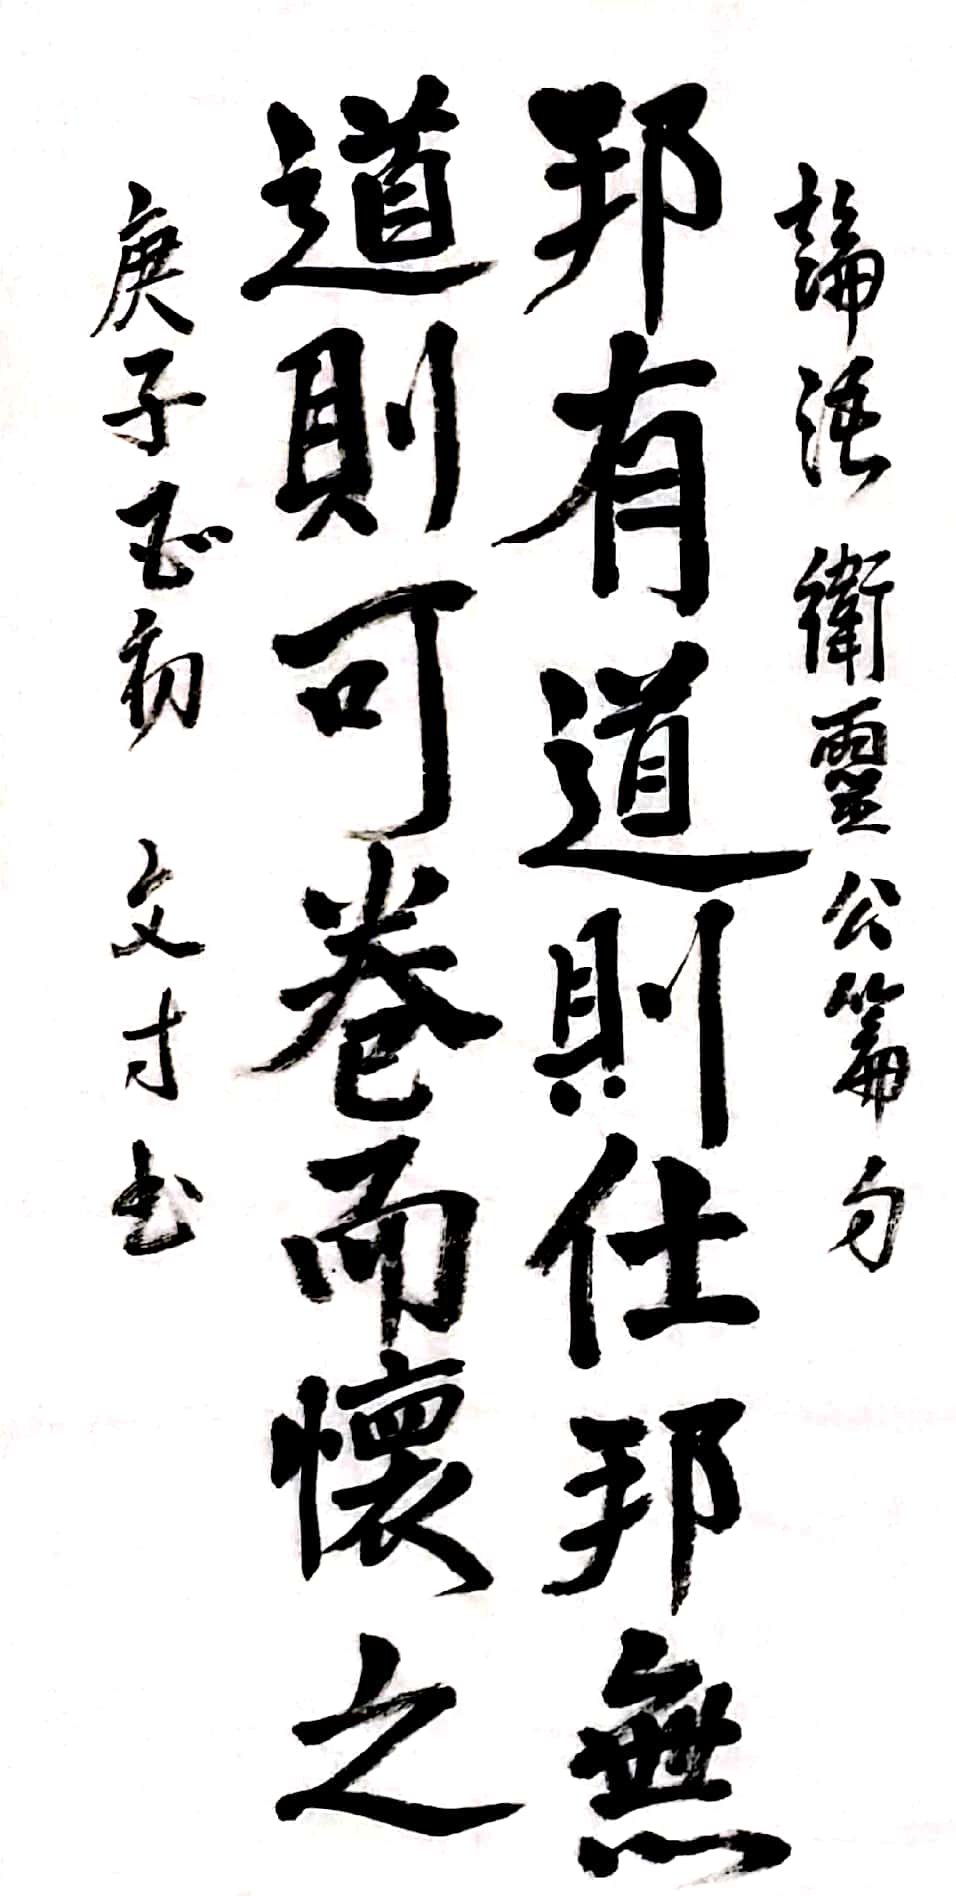 論語 衛靈公篇句
邦有道則仕邦無
道則可卷而懷之
庚子初 文寸书